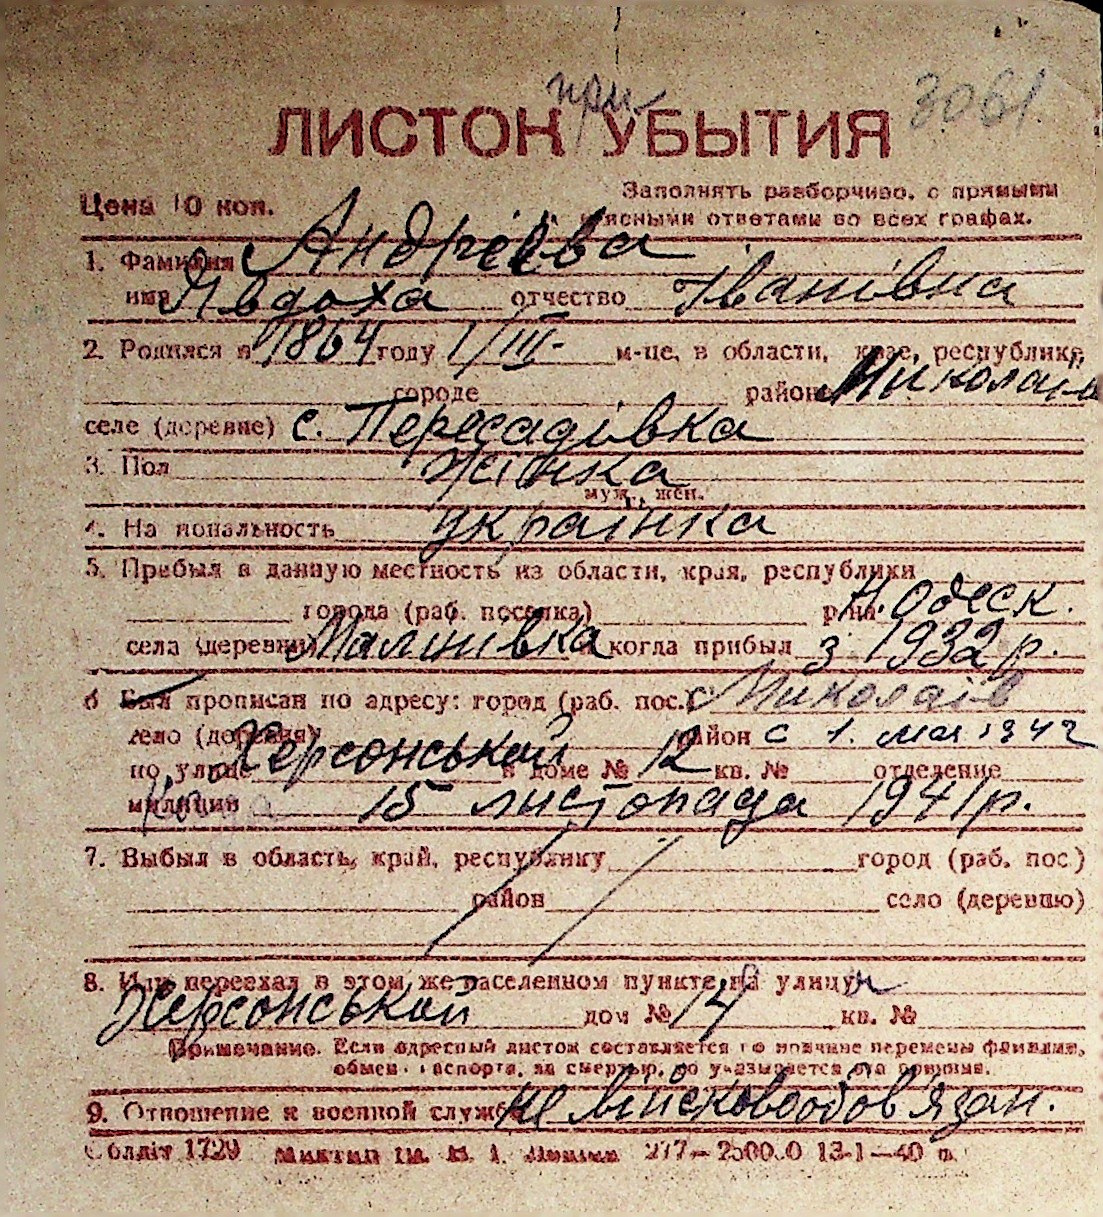 при 3061
ЛИСТОК УБЫТИЯ
Цена 10 коп. Заполнять разборчиво, с прямыми
и ясными ответами во всех графах.
1. Фамилия Андрєєва
имя Явдоха отчество Іванівна
2. Родился в 1864 году 1/III- м-це, в области, крае, республике
городе районе Миколаїв
селе (деревне) с. Пересадівка
3. Пол жінка
муж., жен.
4. Национальность українка
5. Прибыл в данную местность из области, края, республики
города (раб. поселка) р-на Н. Одеск.
села (деревни) Малиївка когда прибыл з 1932 р.
6 Был прописан по адресу: город (раб. пос.) Миколаїв
село (деревня) район с 1. мая 1942
по улице Херсонській в доме № 12 кв. № отделение
милиции 15 листопада 1941 р.
7. Выбыл в область, край, республику город (раб. пос.)
район село (деревню)
8. Или переехал в этом же населенном пункте на улицу
Херсонській дом № 14 кв. №
Примечание. Если адресный листок составляется по причине перемены фамилии,
обмена паспорта, за смертью, то указывается эта причина.
9. Отношение к военной службе не військовообов'язан.
Облліт 1729 277—25000 13-1—40 г.